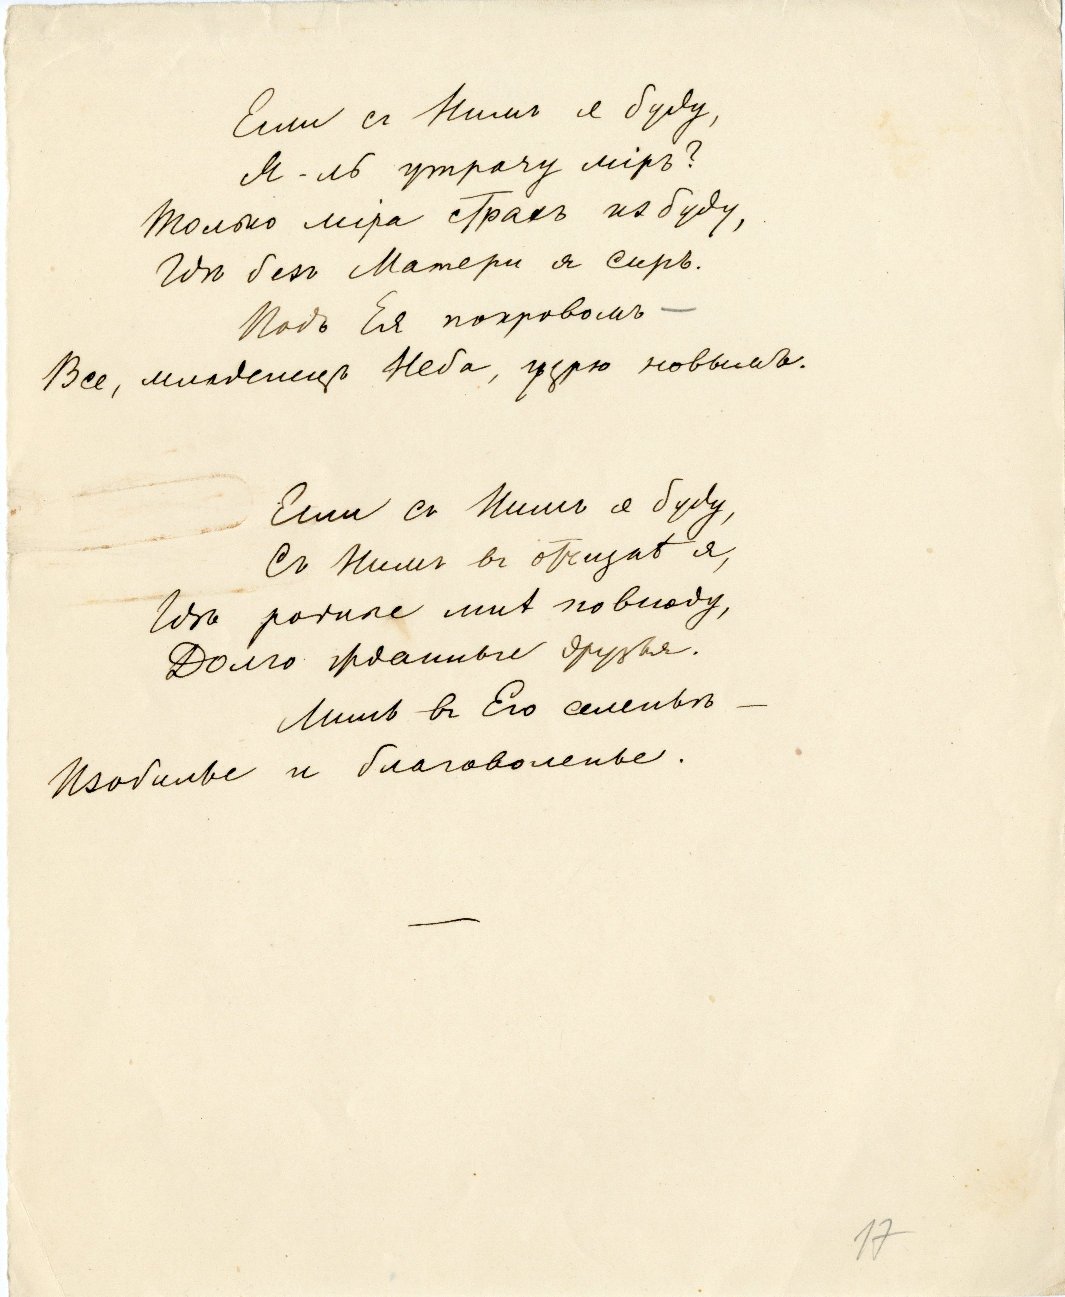 Если съ Нимъ я буду,
Я-ль утрачу міръ?
Только міра страхъ избуду,
Гдѣ безъ Матери я сиръ.
Подъ Ея покровомъ —
Все, младенецъ Неба, узрю новымъ.
Если съ Нимъ я буду,
Съ Нимъ въ отчизнѣ я,
Гдѣ родные мнѣ повсюду,
Долго жданные друзья.
Лишь въ Его селеньѣ —
Изобилье и благоволенье.
17